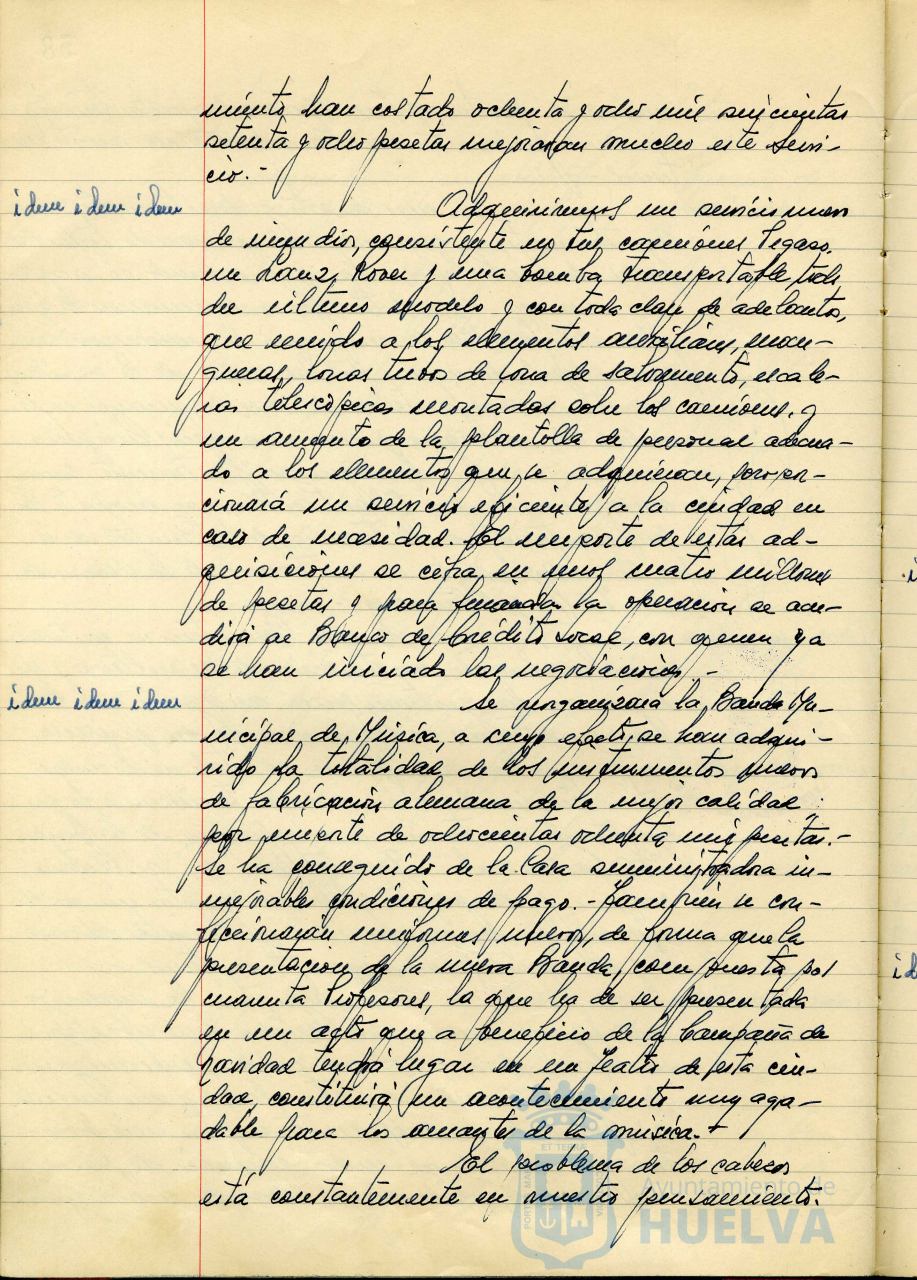 miento han costado ochenta y ocho mil seiscientas
setenta y ocho pesetas mejorarán mucho este Servi-
cio.-
idem idem idem
Adquiriremos un servicio nuevo
de incendios, consistente en tres camiones Pegaso,
un Land Rover y una bomba transportable, todo
del último modelo y con toda clase de adelantos,
que unido a los elementos auxiliares, man-
gueras, lonas tubos de lona de salvamento, escale-
ras telescópicas montadas sobre los camiones, y
un aumento de la plantilla de personal adecua-
do a los elementos que se adquieran, propor-
cionará un servicio eficiente a la ciudad en
caso de necesidad. El importe de estas ad-
quisiciones se cifra en unos cuatro millones
de pesetas y para financiar la operación se acu-
dirá al Banco de Crédito Local, con quien ya
se han iniciado las negociaciones.-
idem idem idem
Se organizará la Banda Mu-
nicipal de Música, a cuyo efecto, se han adqui-
rido la totalidad de los instrumentos nuevos
de fabricación alemana de la mejor calidad
por importe de ochocientas ochenta mil pesetas.-
Se ha conseguido de la Casa suministradora in-
mejorables condiciones de pago.- También se con-
feccionarán uniformes nuevos, de forma que la
presentación de la nueva Banda, compuesta por
cuarenta Profesores, la que ha de ser presentada
en un acto que a beneficio de la Campaña de
navidad tendrá lugar en un Teatro de esta ciu-
dad, constituirá un acontecimiento muy agra-
dable para los amantes de la música.-
El problema de los cabezos
está constantemente en nuestro pensamiento.
Ayuntamiento de
HUELVA